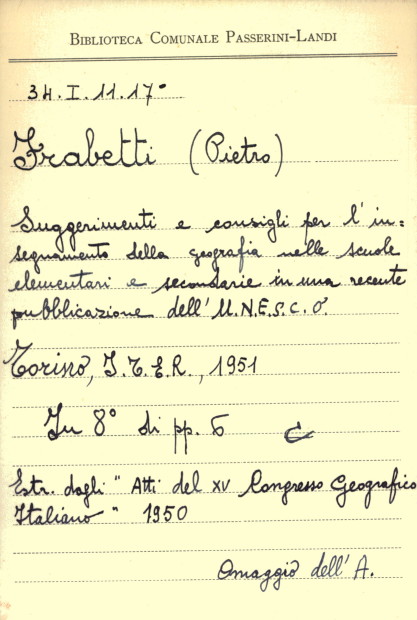 BIBLIOTECA COMUNALE PASSERINI-LANDI
34. I. 11. 17°
Frabetti (Pietro)
Suggerimenti e consigli per l'in=
segnamento della geografia nelle scuole
elementari e secondarie in una recente
pubblicazione dell'U.N.E.S.C.O.
Torino, I.T.E.R., 1951
In 8° di pp. 6 C
Estr. dagli "Atti del XV Congresso Geografico
Italiano" 1950
Omaggio dell'A.